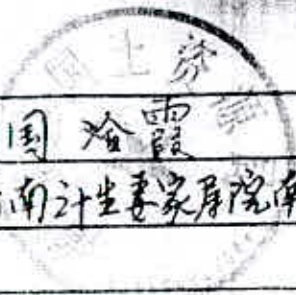 国土资源
周冷霞
南计生委家属院南